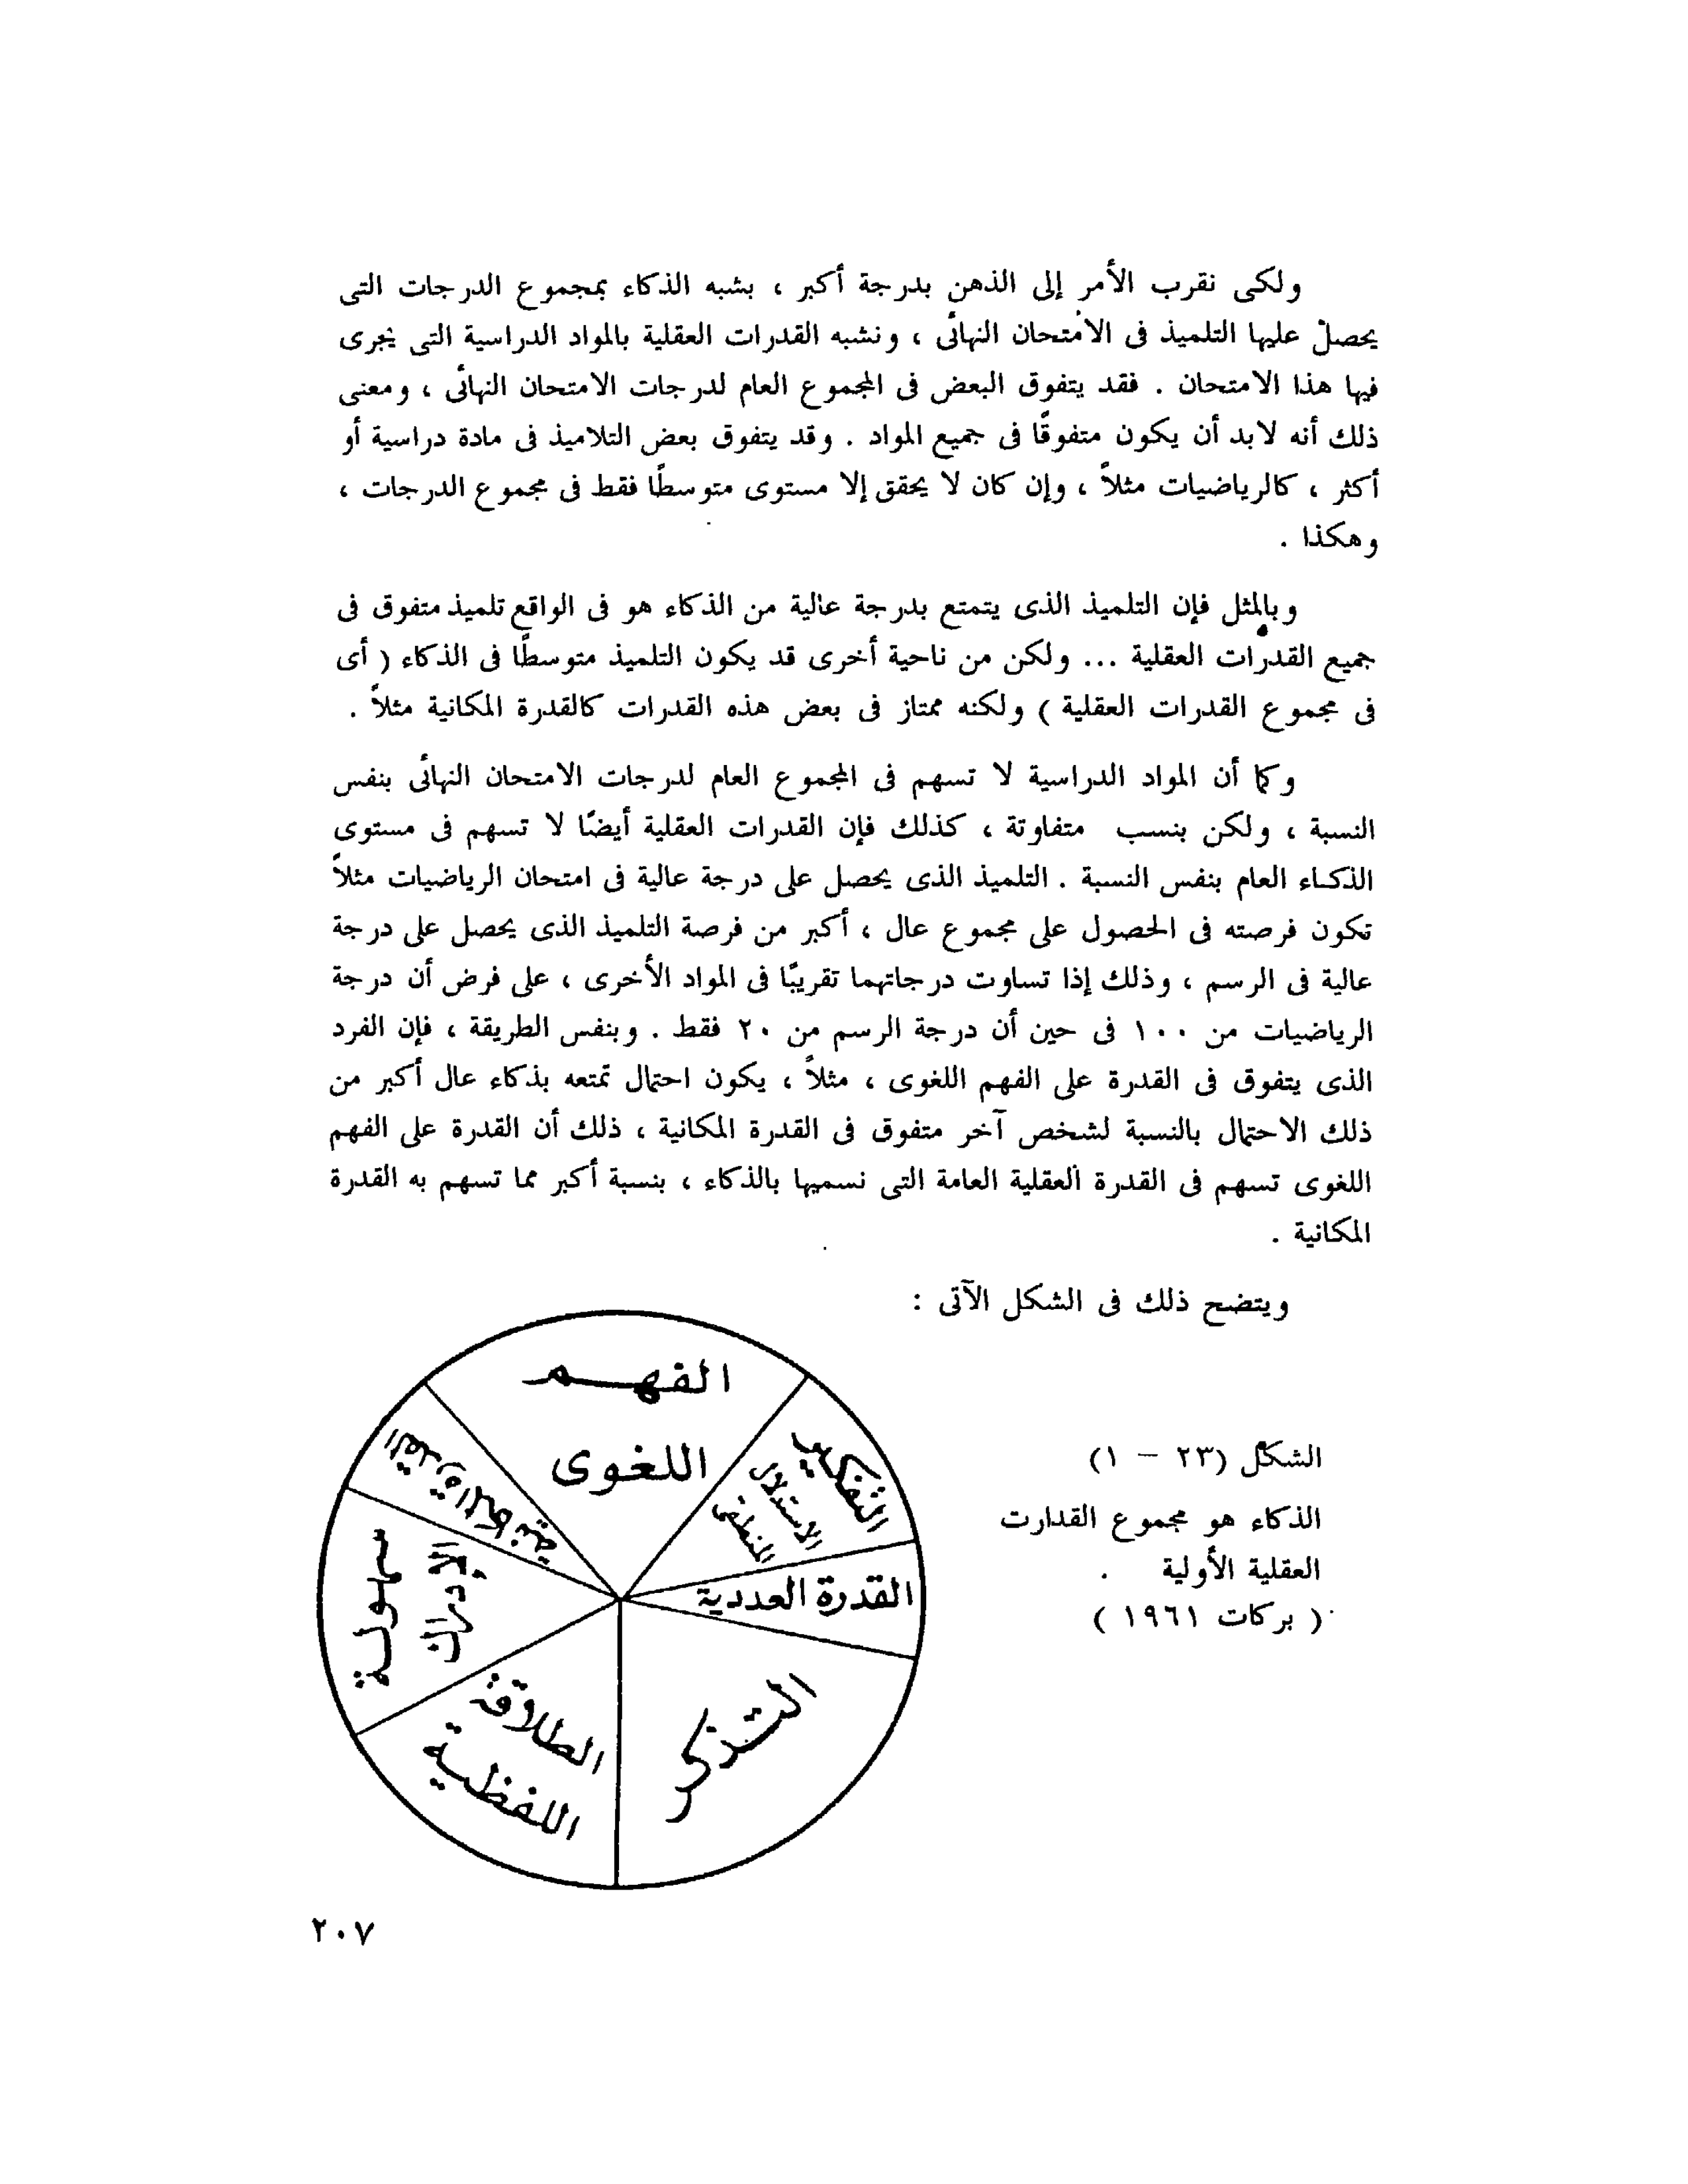 ولكى نقرب الأمر إلى الذهن بدرجة أكبر ، بشبه الذكاء بمجموع الدرجات التى
يحصل عليها التلميذ فى الامتحان النهائى ، ونشبه القدرات العقلية بالمواد الدراسية التى يجرى
فيها هذا الامتحان . فقد يتفوق البعض فى المجموع العام لدرجات الامتحان النهائى ، ومعنى
ذلك أنه لابد أن يكون متفوقًا فى جميع المواد . وقد يتفوق بعض التلاميذ فى مادة دراسية أو
أكثر ، كالرياضيات مثلاً ، وإن كان لا يحقق إلا مستوى متوسطًا فقط فى مجموع الدرجات ،
وهكذا .
وبالمثل فإن التلميذ الذى يتمتع بدرجة عالية من الذكاء هو فى الواقع تلميذ متفوق فى
جميع القدرات العقلية ... ولكن من ناحية أخرى قد يكون التلميذ متوسطًا فى الذكاء ( أى
فى مجموع القدرات العقلية ) ولكنه ممتاز فى بعض هذه القدرات كالقدرة المكانية مثلاً .
وكما أن المواد الدراسية لا تسهم فى المجموع العام لدرجات الامتحان النهائى بنفس
النسبة ، ولكن بنسب متفاوتة ، كذلك فإن القدرات العقلية أيضًا لا تسهم فى مستوى
الذكاء العام بنفس النسبة . التلميذ الذى يحصل على درجة عالية فى امتحان الرياضيات مثلاً
تكون فرصته فى الحصول على مجموع عال ، أكبر من فرصة التلميذ الذى يحصل على درجة
عالية فى الرسم ، وذلك إذا تساوت درجاتهما تقريبًا فى المواد الأخرى ، على فرض أن درجة
الرياضيات من ١٠٠ فى حين أن درجة الرسم من ٢٠ فقط . وبنفس الطريقة ، فإن الفرد
الذى يتفوق فى القدرة على الفهم اللغوى ، مثلاً ، يكون احتمال تمتعه بذكاء عال أكبر من
ذلك الاحتمال بالنسبة لشخص آخر متفوق فى القدرة المكانية ، ذلك أن القدرة على الفهم
اللغوى تسهم فى القدرة العقلية العامة التى نسميها بالذكاء ، بنسبة أكبر مما تسهم به القدرة
المكانية .
ويتضح ذلك فى الشكل الآتى :
الشكل (٢٣ – ١)
الذكاء هو مجموع القدارت
العقلية الأولية .
( بركات ١٩٦١ )
الفهم
اللغوى
التفكير
الاستدلال
المنطقى
القدرة العددية
التذكر
الطلاقة
اللفظية
سهولة
الأدراك
القدرة المكانية
٢٠٧